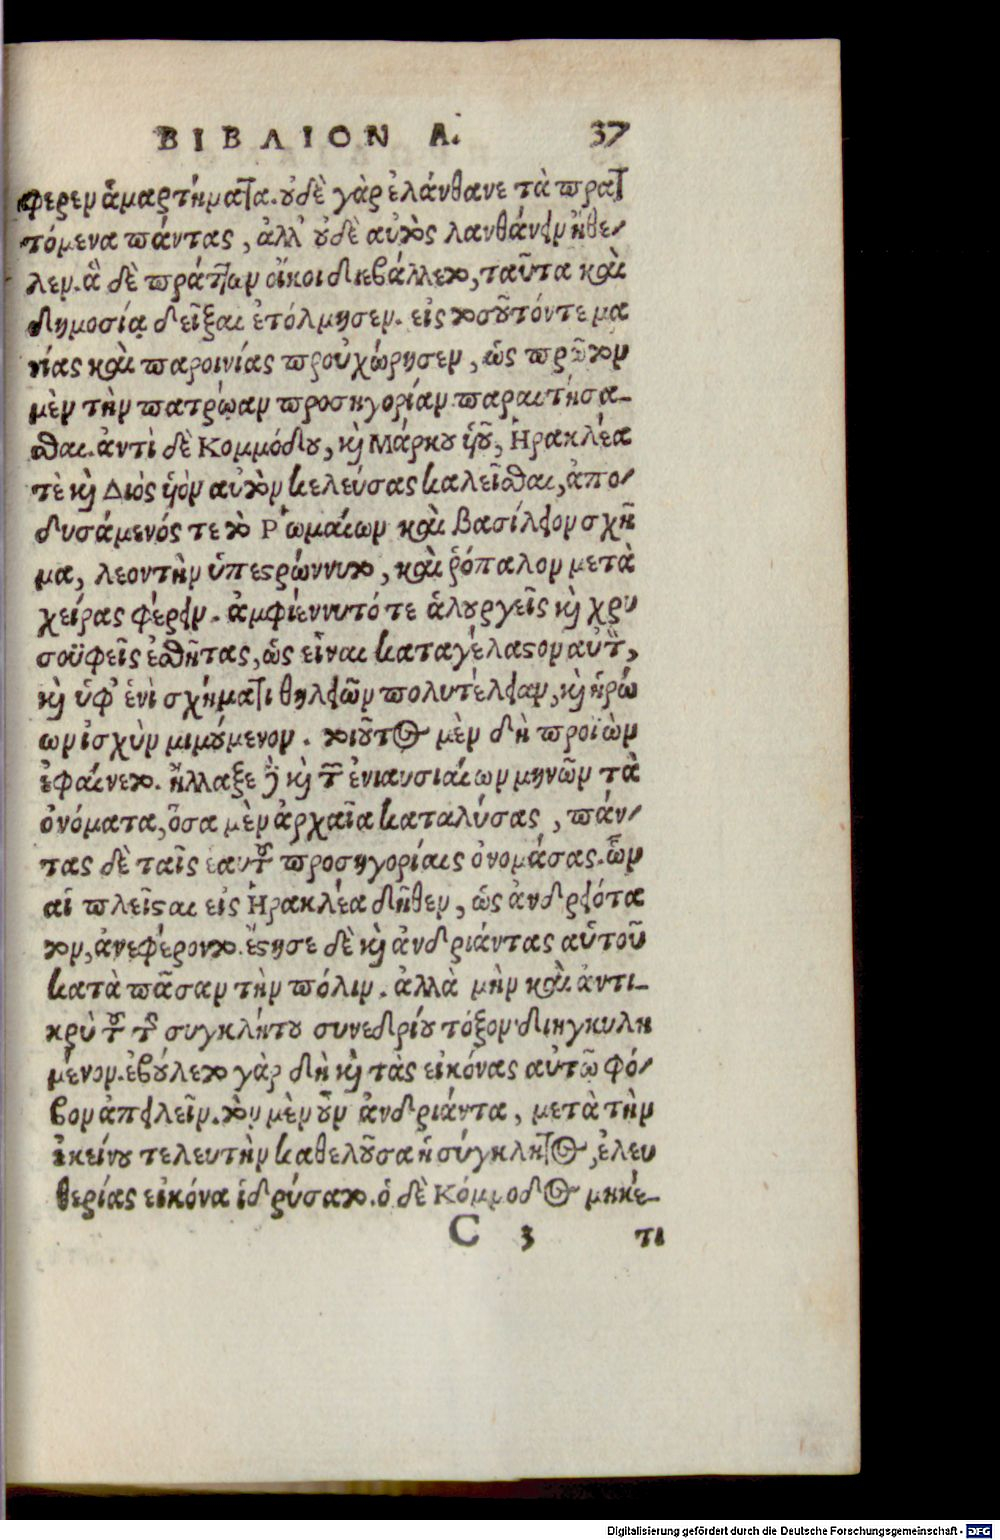 ΒΙΒΛΙΟΝ Α. 37
φερεν ἁμαρτήματα. οὐδὲ γὰρ ἐλάνθανε τὰ πρατ
τόμενα πάντας, ἀλλ' οὐδὲ αὐτὸς λανθάνειν ἤθε-
λεν. ἃ δὲ πράττων οἴκοι διεβάλλετο, ταῦτα καὶ
δημοσίᾳ δεῖξαι ἐτόλμησεν. εἰς τοσοῦτόν τε μα
νίας καὶ παροινίας προὐχώρησεν, ὡς πρῶτον
μὲν τὴν πατρῴαν προσηγορίαν παραιτήσα-
σθαι. ἀντὶ δὲ Κομμόδου, καὶ Μάρκου υἱοῦ, Ἡρακλέα
τὲ καὶ Διὸς υἱὸν αὑτὸν κελεύσας καλεῖσθαι, ἀπο-
δυσάμενός τε τὸ Ῥωμαίων καὶ βασίλειον σχῆ
μα, λεοντὴν ὑπεστρώννυτο, καὶ ῥόπαλον μετὰ
χεῖρας φέρειν. ἀμφιέννυτό τε ἁλουργεῖς καὶ χρυ
σοϋφεῖς ἐσθῆτας, ὡς εἶναι καταγέλαστον αὐτὸν,
καὶ ὑφ' ἑνὶ σχήματι θηλειῶν πολυτέλειαν, καὶ ἡρώ
ων ἰσχὺν μιμούμενον. τοιοῦτος μὲν δὴ προϊὼν
ἐφαίνετο. ἤλλαξε δὲ καὶ τῶν ἐνιαυσιαίων μηνῶν τὰ
ὀνόματα, ὅσα μὲν ἀρχαῖα καταλύσας, πάν-
τας δὲ ταῖς ἑαυτοῦ προσηγορίαις ὀνομάσας. ὧν
αἱ πλεῖσται εἰς Ἡρακλέα δῆθεν, ὡς ἀνδρειότα
τον, ἀνεφέροντο. ἔστησε δὲ καὶ ἀνδριάντας αὑτοῦ
κατὰ πᾶσαν τὴν πόλιν. ἀλλὰ μὴν καὶ ἀντι-
κρὺ τοῦ τῆς συγκλήτου συνεδρίου τόξον διηγκυλη
μένον. ἐβούλετο γὰρ δὴ καὶ τὰς εἰκόνας αὐτῷ φό-
βον ἀπειλεῖν. τὸν μὲν οὖν ἀνδριάντα, μετὰ τὴν
ἐκείνου τελευτὴν καθελοῦσα ἡ σύγκλητος, ἐλευ
θερίας εἰκόνα ἱδρύσατο. ὁ δὲ Κόμμοδος μηκέ-
C 3 τι
Digitalisierung gefördert durch die Deutsche Forschungsgemeinschaft - DFG